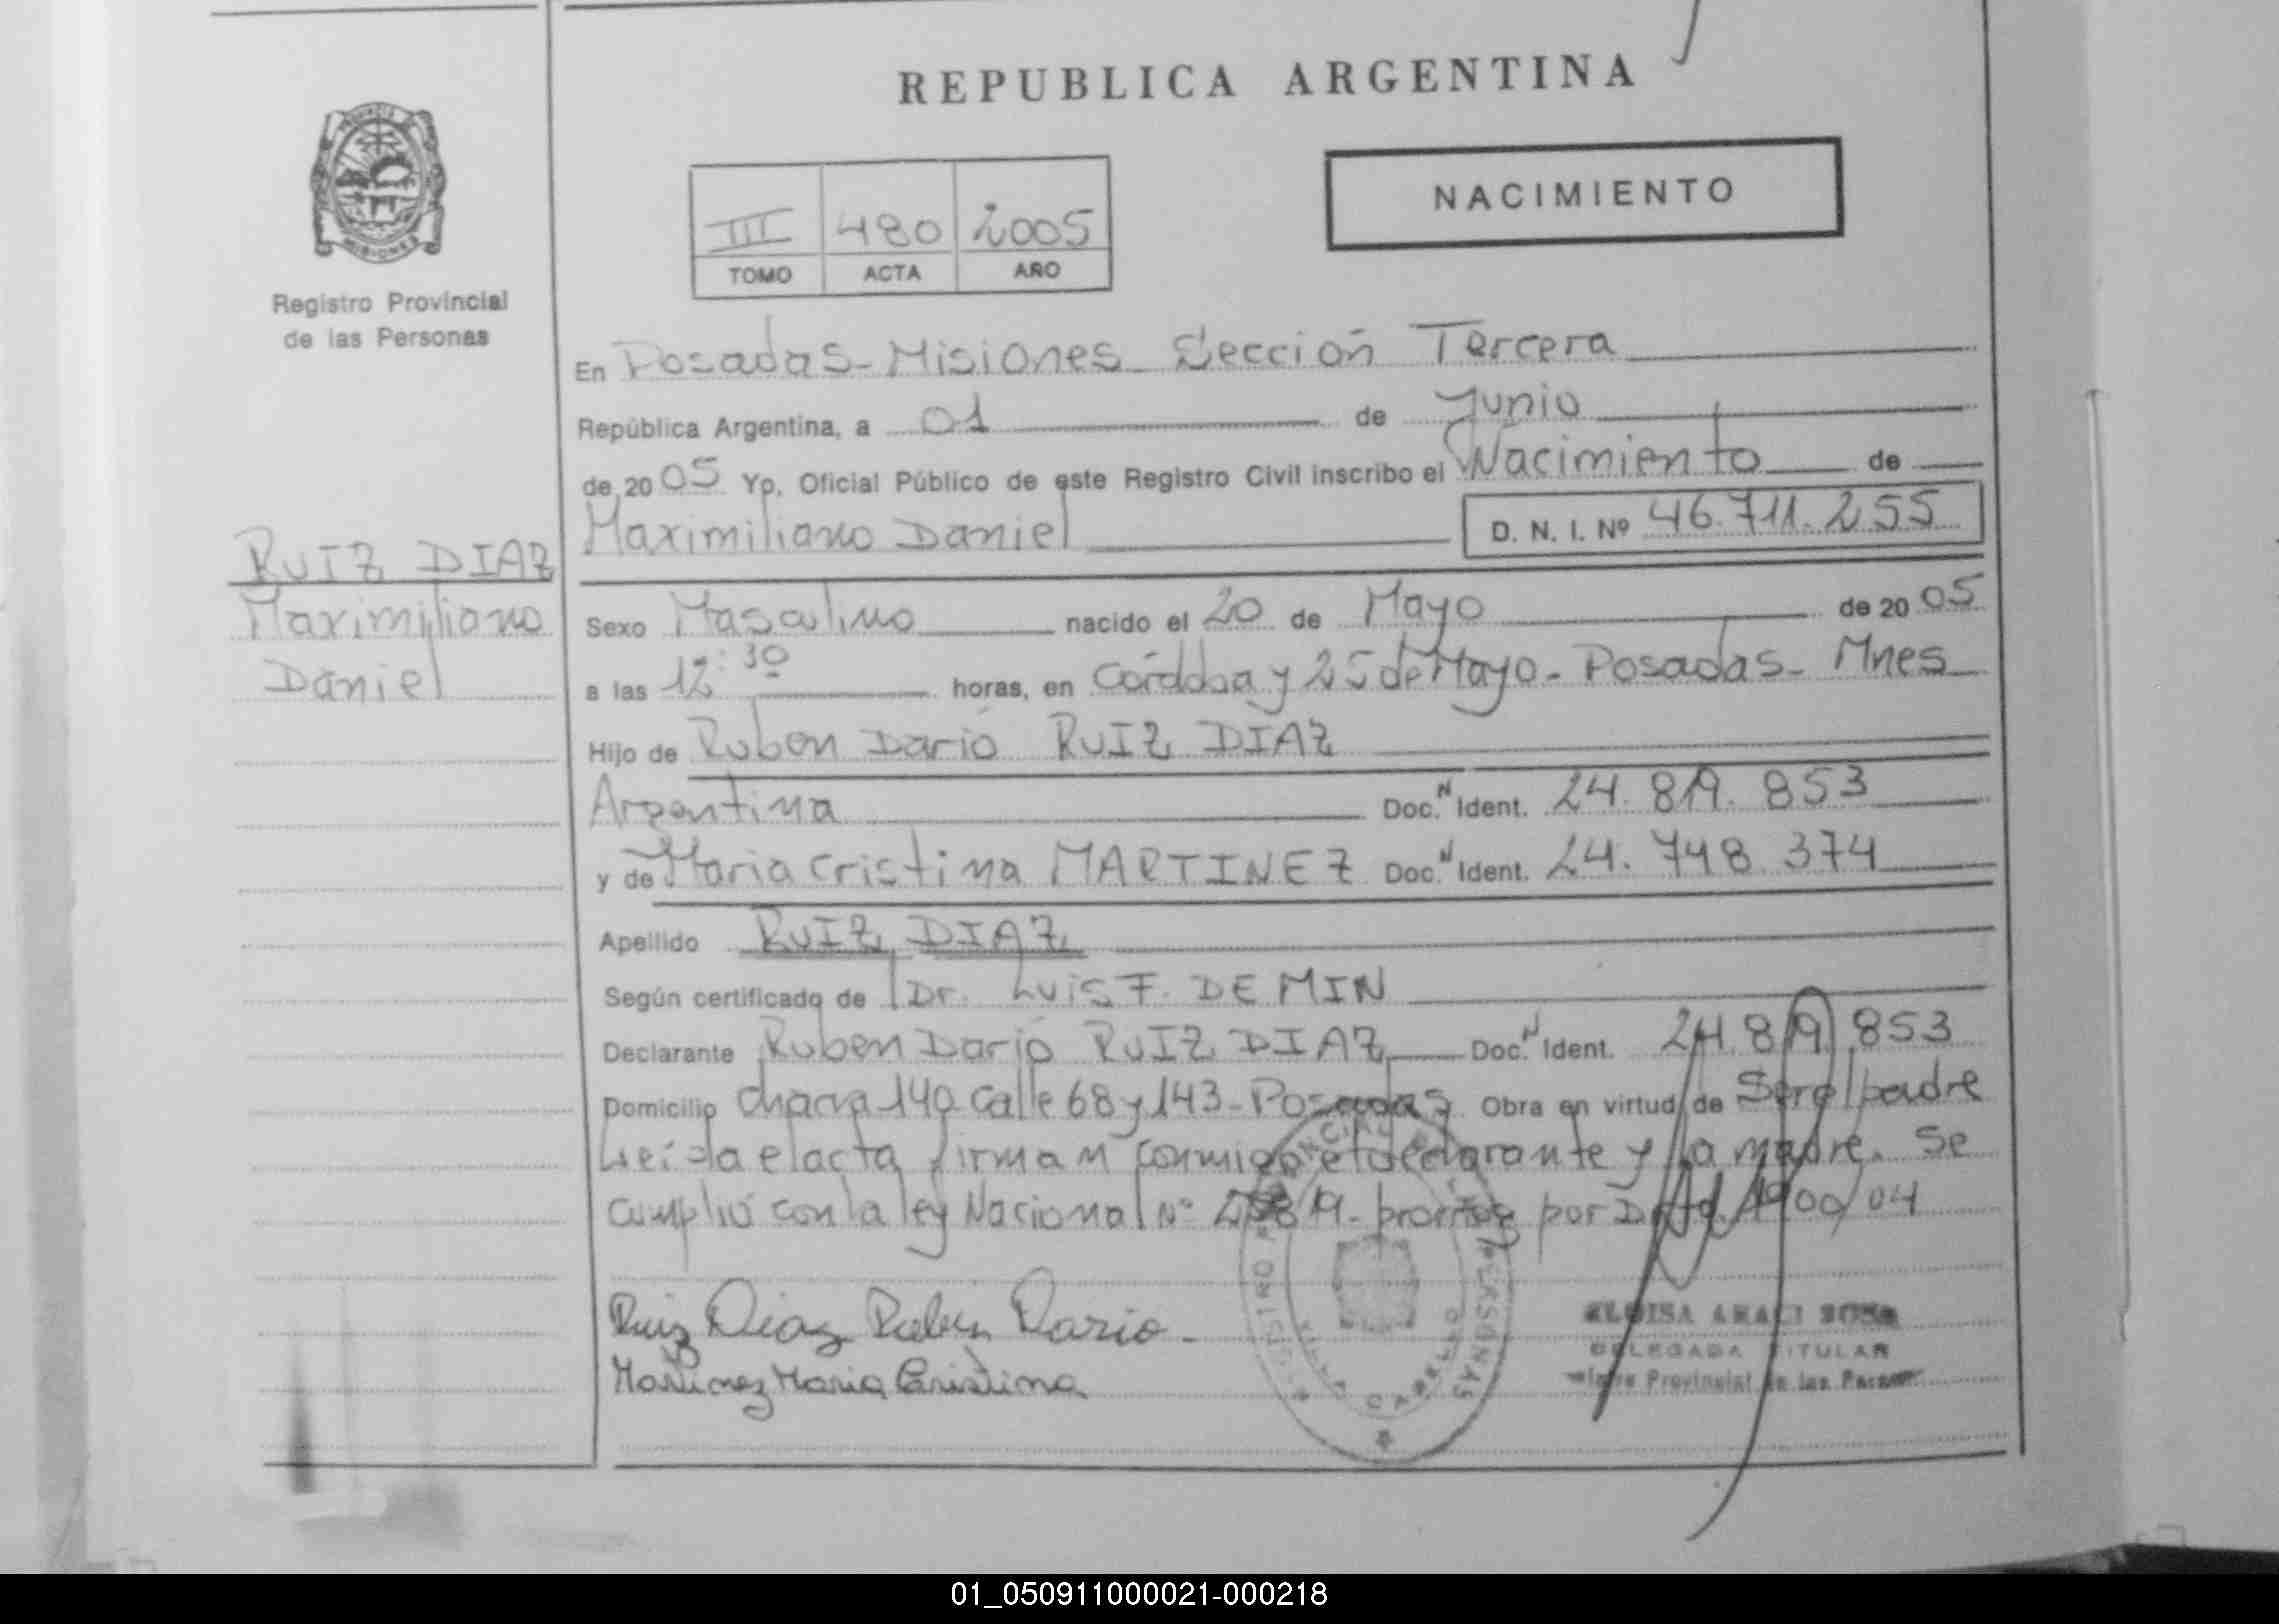 REPUBLICA ARGENTINA
NACIMIENTO
III 480 2005
TOMO ACTA AÑO
MISIONES
Registro Provincial
de las Personas
En Posadas - Misiones Sección Tercera
República Argentina, a 01 de Junio
de 2005 Yo, Oficial Público de este Registro Civil inscribo el Nacimiento de
Maximiliano Daniel D. N. I. Nº 46.711.255
RUIZ DIAZ
Maximiliano
Daniel
Sexo Masculino nacido el 20 de Mayo de 2005
a las 12:30 horas, en Córdoba y 25 de Mayo - Posadas - Mnes
Hijo de Ruben Dario RUIZ DIAZ
Argentina Doc. N Ident. 24.819.853
y de Maria Cristina MARTINEZ Doc. N Ident. 24.748.374
Apellido RUIZ DIAZ
Según certificado de Dr. Luis F. DE MIN
Declarante Ruben Dario RUIZ DIAZ Doc. N Ident. 24.819.853
Domicilio chacra 140 Calle 68 y 143 - Posadas Obra en virtud de Ser el padre
Leida el acta firman conmigo el declarante y la madre. Se
cumplió con la ley Nacional Nº por 1900/04
Ruiz Diaz Ruben Dario
Martinez Maria Cristina
VILLA CABELLO
DELEGADA TITULAR
Provincial de las
01_050911000021-000218